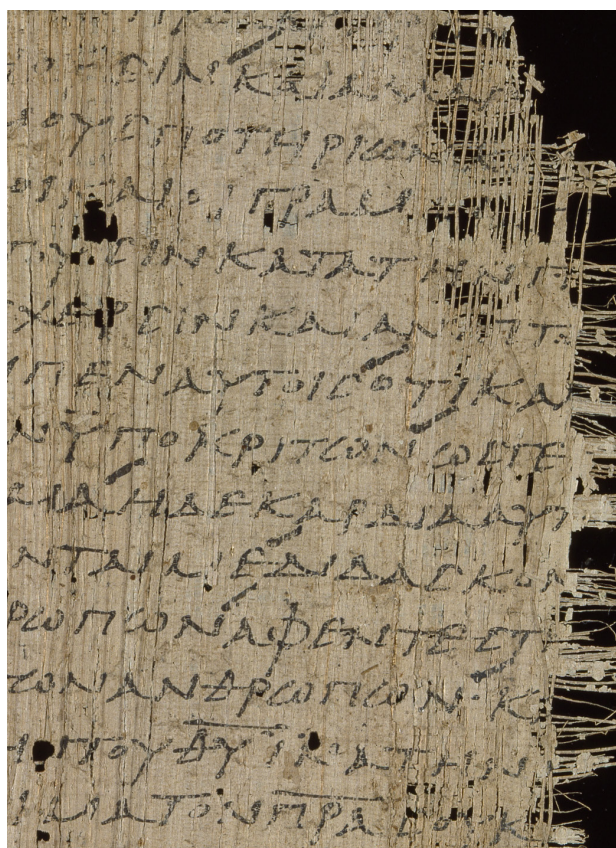 ΕΙΝ ΚΑΙ ΑΛΛΑ
ΜΟΥϹ ΠΟΤΗΡΙΩΝ Κ
ΚΑΙ ΟΙ ΓΡΑΜ
ΤΟΥϹΙΝ ΚΑΤΑ ΤΗΝ Π
ΧΕΡϹΙΝ ΚΑΙ ΑΝΙΠΤΟ
ΙΠΕΝ ΑΥΤΟΙϹ ΟΤΙ ΚΑΛ
Ν ΥΠΟΚΡΙΤΩΝ ΩϹ ΓΕ
ΜΑ Η ΔΕ ΚΑΡΔΙΑ ΑΥΤ
ΝΤΑΙ ΜΕ ΔΙΔΑϹΚΟΝ
ΡΩΠΩΝ ΑΦΕΝΤΕϹ ΤΗ
ΤΩΝ ΑΝΘΡΩΠΩΝ Κ
ΤΟΥ Θ̅Υ̅ ΙΝΑ ΤΗΝ
ΜΑ ΤΟΝ Π̅Ρ̅Α̅ ϹΟΥ Κ